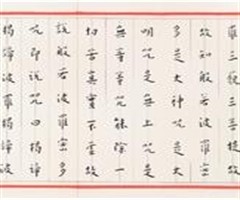 羅三藐三菩提
故知般若波羅蜜
多是大神咒是大
明咒是無上咒是
無等等咒能除一
切苦真實不虛故
說般若波羅蜜多
咒即說咒曰揭諦
揭諦波羅揭諦波